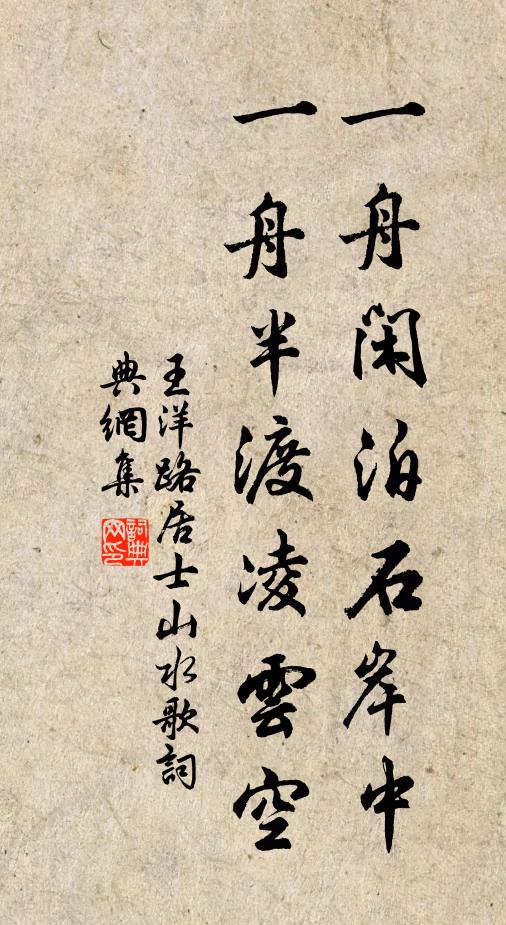 一舟閑泊石岸中
一舟半渡凌雲空
王洋路居士山水歌詞
典網集
詞典網印